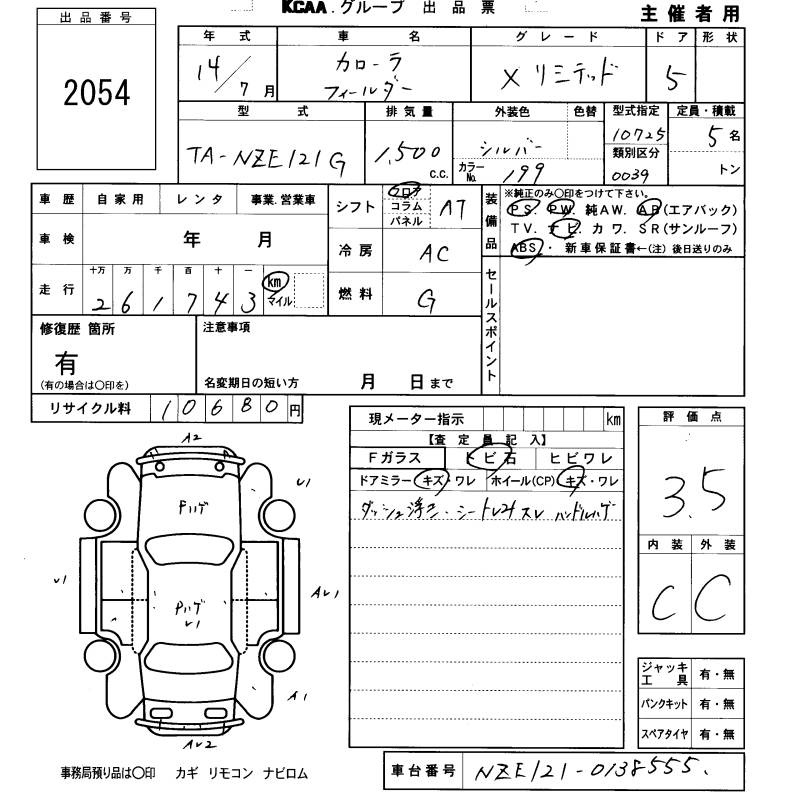 KCAA.グループ 出品票
主催者用
出品番号
2054
年式 車名 グレード ドア 形状
14/7月 カローラ フィールダー X リミテッド 5
型式 排気量 外装色 色替 型式指定 定員・積載
TA-NZE121G 1,500 c.c. シルバー 10725 5名
カラーNo. 199 類別区分 0039 トン
車歴 自家用 レンタ 事業.営業車
車検 年 月
走行 十万 万 千 百 十 一
2 6 1 7 4 3 km マイル
シフト フロア コラム パネル AT
冷房 AC
燃料 G
装備品
※純正のみ○印をつけて下さい。
PS. PW. 純AW. AB(エアバック)
TV. ナビ. カワ. SR(サンルーフ)
ABS・ 新車保証書←(注) 後日送りのみ
セールスポイント
修復歴 箇所
有
(有の場合は○印を)
注意事項
名変期日の短い方 月 日まで
リサイクル料 10680円
現メーター指示 km
【査定員記入】
Fガラス トビ石 ヒビワレ
ドアミラー キズ・ワレ ホイール(CP) キズ・ワレ
ダッシュ浮き・シートレサスレ ハンドルハゲ
評価点
3.5
内装 外装
C C
A2
U1
Pハゲ
U1
Pハゲ
U1
AU1
A1
AU2
ジャッキ工具 有・無
パンクキット 有・無
スペアタイヤ 有・無
事務局預り品は○印 カギ リモコン ナビロム
車台番号 NZE121-0138555.